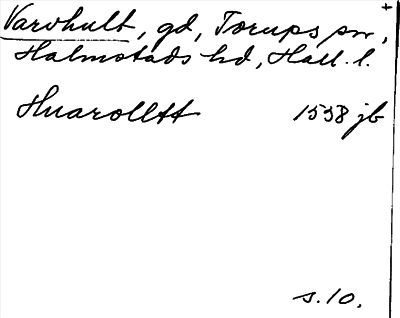 Varvhult, gd, Torups sn,
Halmstads hd, Hall. l.
Huarolltt 1538 jb
s. 10.